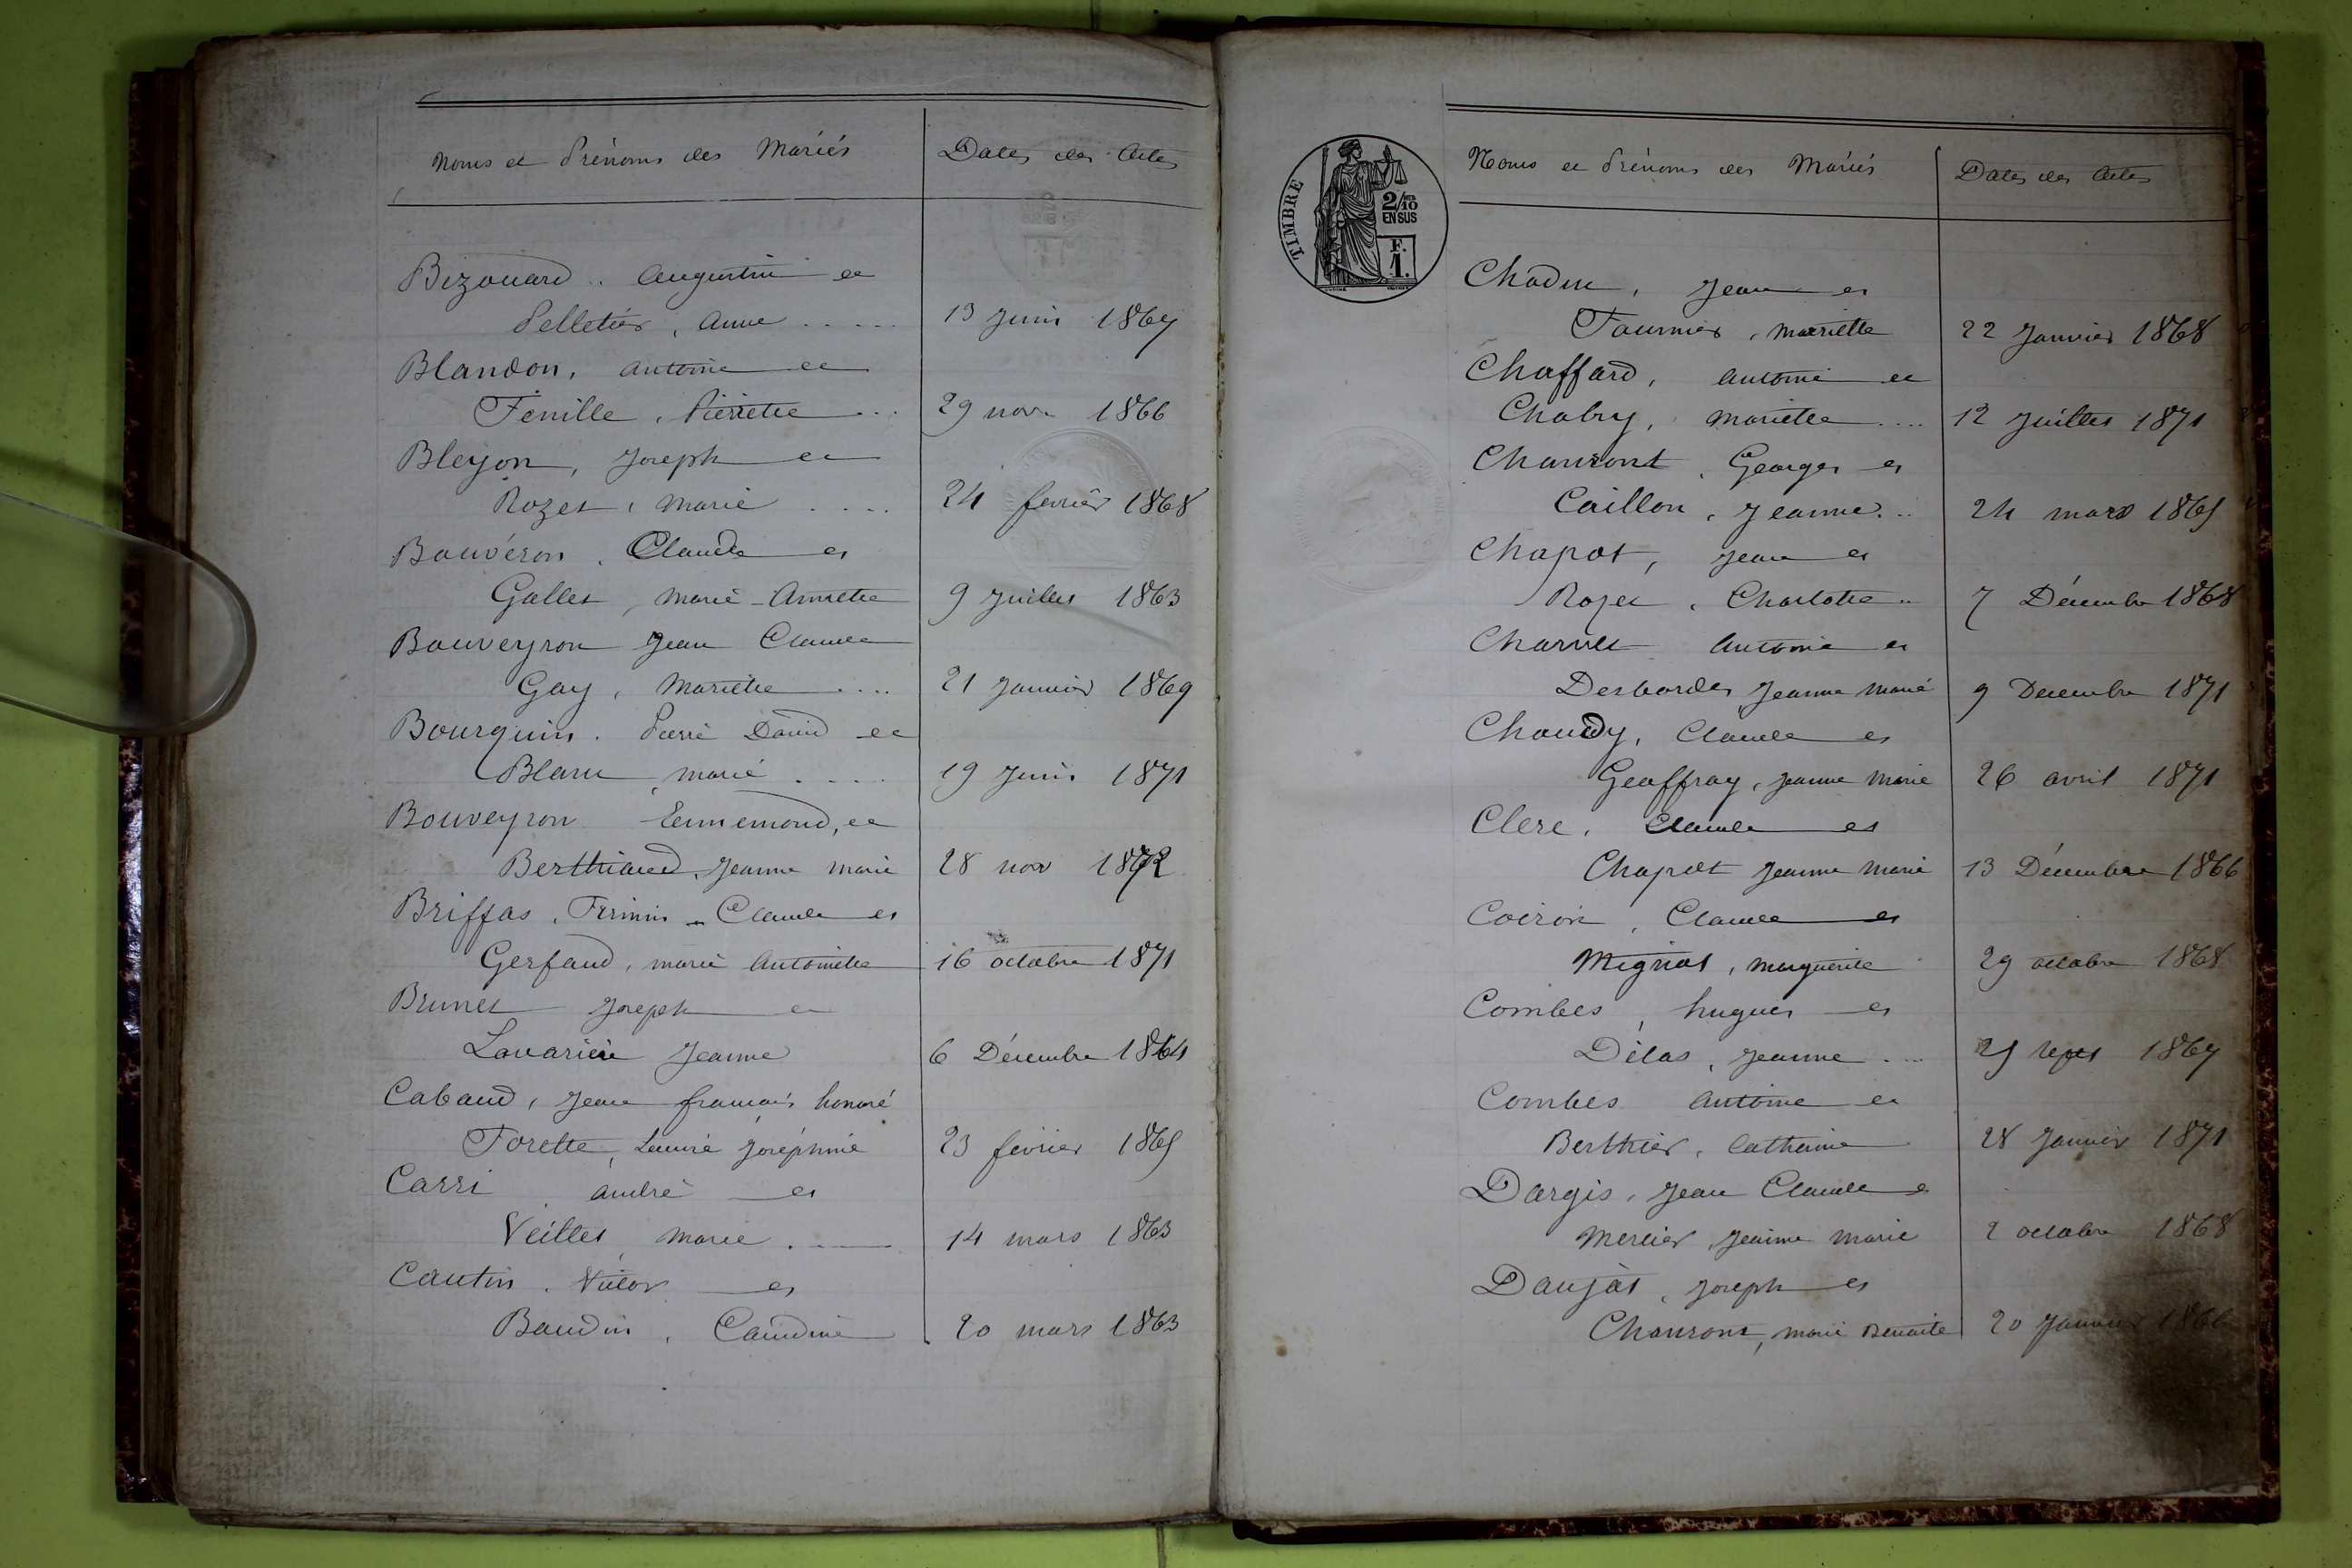 Noms et Prénoms des Mariés
Dates des Actes
Bizouard . Augustin et
Pelletier, Anne ..... 13 Juin 1867
Blandon, Antoine et
Fenille, Pierrette ... 29 nov. 1866
Bleyon, Joseph et
Rozet, Marie .... 24 février 1868
Bouvéron, Claude et
Gallet, Marie-Annette 9 Juillet 1863
Bouveyron Jean Claude
Gay, Mariette .... 21 Janvier 1869
Bourquin. Pierre David et
Blanc, Marie ..... 19 Juin 1871
Bouveyron Ennemond, et
Berthiaud, Jeanne Marie 28 nov 1872
Briffas, Firmin - Claude et
Gerfaud, Marie Antoinette 16 octobre 1871
Brunet Joseph et
Jeanne 6 Décembre 1864
Cabaud, Jean françois honoré
Forette, Joséphine 23 février 1865
Carri, André et
Veillet, Marie . 14 mars 1863
Cautin, Victor et
Baudin, Claudine 20 mars 1863
TIMBRE
2/10
EN SUS
F.
1.
Noms et Prénoms des Mariés
Dates des Actes
Chaduc, Jean et
Fournier, Mariette 22 Janvier 1868
Chaffard, Antoine et
Chabry, Mariette .... 12 Juillet 1871
Chanront, Georges et
Caillon, Jeanne... 24 mars 1865
Chapot, Jean et
Rozet, Charlotte.. 7 Décembre 1868
Charvet Antoine et
Desbordes, Jeanne Marie 9 Decembre 1871
Chaudy, Claude et
Geoffray, Jeanne Marie 26 avril 1871
Clerc, Claude et
Chapot Jeanne Marie 13 Décembre 1866
Coiron, Claude et
Mignot, Marguerite 29 octobre 1868
Combes, hugues et
Délas, Jeanne .... 25 sept 1867
Combes Antoine et
Berthier, Catherine 28 Janvier 1871
Dargis, Jean Claude et
Mercier, Jeanne Marie 2 octobre 1868
Daujat, Joseph et
Chanront, Marie Benoite 20 Janvier 1866